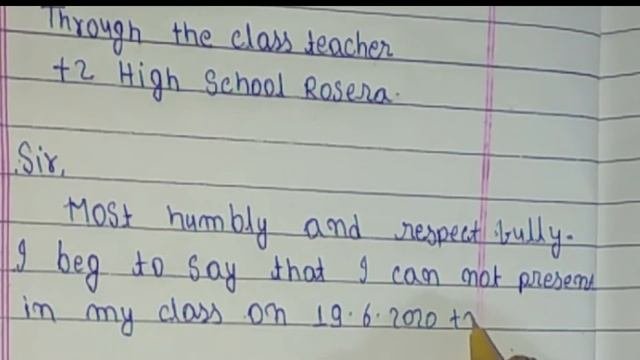 Through the class teacher
+2 High School Rosera.
Sir,
Most humbly and respectfully.
I beg to say that I can not present
in my class on 19.6.2020